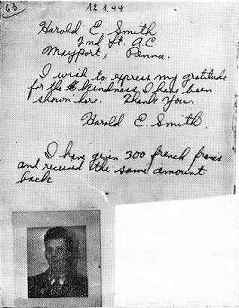 63
12.1.44
Harold E. Smith
2nd Lt. A.C.
Mayport, Penna.
I wish to express my gratitude
for the kindness I have been
shown here. Thank You.
Harold E. Smith.
I have given 300 french francs
and received the same amount
back